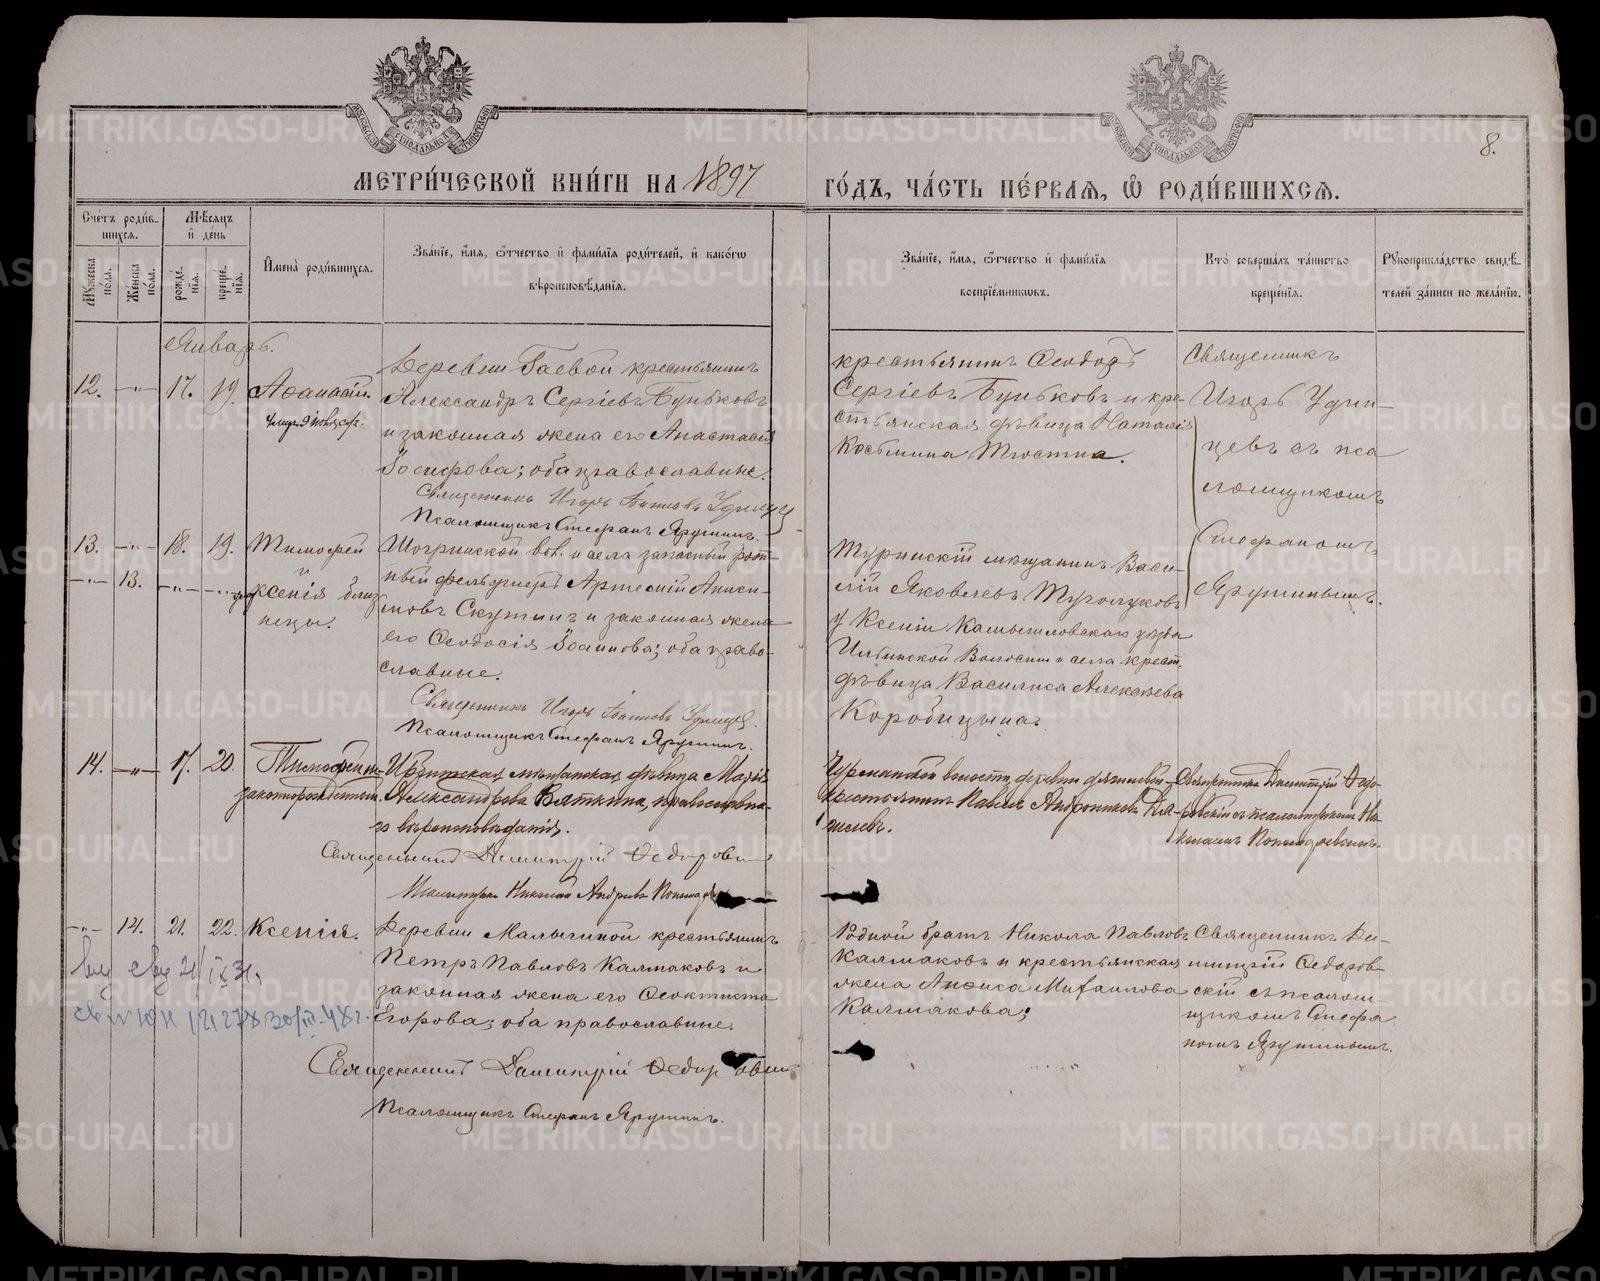 МОСКОВСКОЙ СѴНОДАЛЬНОЙ ТИПОГРАФІИ
МОСКОВСКОЙ СѴНОДАЛЬНОЙ ТИПОГРАФІИ
8.
МЕТРИ́ЧЕСКОЙ КНИ́ГИ НА 1897
ГО́ДЪ, ЧА́СТЬ ПЕ́РВАѦ, Ѽ РОДИ́ВШИХСѦ.
Сче́тъ роди́в-
шихсѧ.
Мꙋжеска по́ла.
Же́нска по́ла.
Мѣ́сѧцъ
и҆ де́нь
рожде́нїѧ.
креще́нїѧ.
И҆мена̀ роди́вшихсѧ.
Зва́нїе, и҆́мѧ, ѻ҆́тчество и҆ фами́лїѧ роди́телей, и҆ како́гѡ
вѣроисповѣ́данїѧ.
Зва́нїе, и҆́мѧ, ѻ҆́тчество и҆ фами́лїѧ
воспрїе́мникѡвъ.
Кто̀ соверша́лъ та́инство
креще́нїѧ.
Рꙋкоприкла́дство свидѣ́-
телей за́писи по жела́нїю.
Январь.
12. -"- 17. 19. Аѳанасій.
Деревни Гаевой крестьянинъ
Александръ Сергіевъ Буньковъ
и законная жена его Анастасія
Іосифова; оба православные.
Священникъ Игорь Удинцев
Псаломщикъ Стефанъ Ярушинъ.
крестьянинъ Ѳеодоръ
Сергіевъ Буньковъ и кре-
стьянская дѣвица Наталія
Косьмина Тюстина.
Священникъ
Игорь Удин-
цевъ съ пса
ломщикомъ
Стефаномъ
Ярушинымъ.
13. -"- 18. 19. Тимофей
-"- 13. -"- -"-
и
Ксенія близ
нецы.
Шогринской вол. и села запасный рот-
ный фельдшеръ Артемій Аниси-
мовъ Скутинъ и законная жена
его Ѳеодосія Іоаннова; оба право-
славные.
Священникъ Игорь Удинцев.
Псаломщикъ Стефанъ Ярушинъ.
Туринскій мѣщанинъ Васи-
лій Яковлевъ Туголуковъ
у Ксеніи Камышловскаго уѣзда
Ильинской Волости и села крест.
дѣвица Василиса Алексѣева
Коробицына.
14. -"- 17. 20. Тимофей не-
законнорожденный.
Ирбитская мѣщанская дѣвица Марія
Александрова Вяткина, православна-
го вѣроисповѣданія.
Священникъ Димитрій Ѳедоровскій
Псаломщикъ Николай Андреевъ
волости, деревни
крестьянинъ Павелъ Андрониковъ
Священникъ Димитрій Ѳедо-
ровскій съ псаломщикомъ Ни-
колаемъ
-"- 14. 21. 22. Ксенія.
Деревни Малыгиной крестьянинъ
Петръ Павловъ Калмаковъ и
законная жена его Ѳеоктиста
Егорова; оба православные.
Священникъ Димитрій Ѳедоровскій
Псаломщикъ Стефанъ Ярушинъ.
Родной братъ Никола Павловъ
Калмаковъ и крестьянская
жена Анѳиса Михаилова
Калмакова;
Священникъ Ди-
митрій Ѳедоров-
скій съ псалом-
щикомъ Стефа
номъ Ярушинымъ.
METRIKI.GASO-URAL.RU